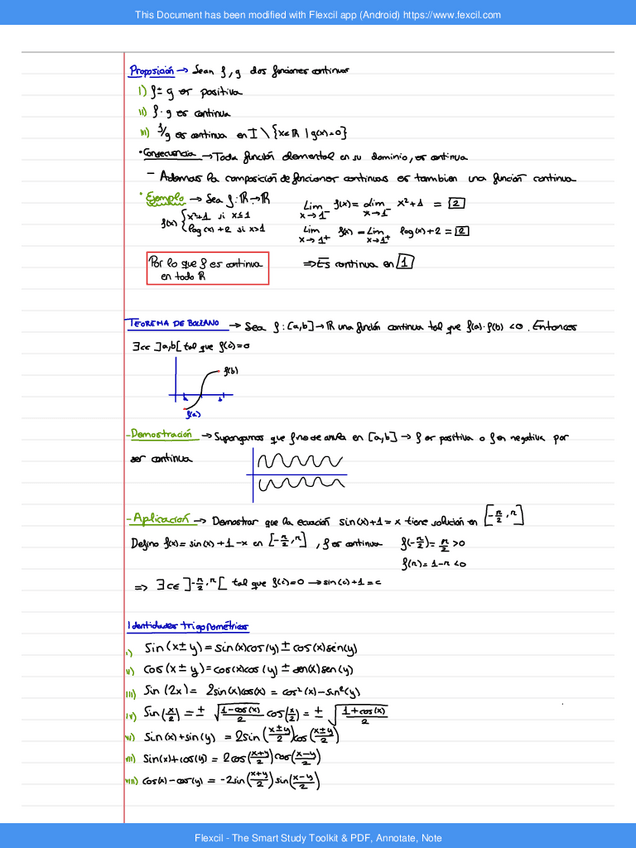 This Document has been modified with Flexcil app (Android) https://www.fexcil.com
Proposición → Sean f, g dos funciones continuas
I) f ± g es positiva
II) f · g es continua
III) f/g es continua en I \ {x∈ℝ | g(x)=0}
• Consecuencia → Toda función elemental en su dominio, es continua
– Ademas la composición de funciones continuas es tambien una función continua
• Ejemplo → Sea f: ℝ→ℝ
f(x) { x²+1 si x≤1
log(x)+2 si x>1
Lim x→1⁻ f(x) = lim x→1⁻ x²+1 = 2
Lim x→1⁺ f(x) = Lim x→1⁺ log(x)+2 = 2
Por lo que f es continua
en todo ℝ
⇒ Es continua en 1
TEOREMA DE BOLZANO → Sea f: [a,b]→ℝ una función continua tal que f(a)·f(b) <0. Entonces
∃c∈ ]a,b[ tal que f(c)=0
f(b)
f(a)
- Demostración → Supongamos que f no se anula en [a,b] → f es positiva o f es negativa por
ser continua
- Aplicación → Demostrar que la ecuación sin(x)+1=x tiene solución en [-π/2, π]
Defino f(x)= sin(x)+1-x en [-π/2, π], f es continua f(-π/2)= π/2 >0
f(π)= 1-π <0
⇒ ∃c∈ ]-π/2, π[ tal que f(c)=0 → sin(c)+1=c
Identidades trigonométricas
I) Sin(x±y)= sin(x)cos(y) ± cos(x)sen(y)
II) Cos(x±y)= cos(x)cos(y) ± sen(x)sen(y)
III) Sin(2x)= 2sin(x)cos(x) = cos²(x)-sin²(y)
IV) Sin(x/2) = ± √(1-cos(x))/2 cos(x/2) = ± √(1+cos(x))/2
V) Sin(x)+sin(y) = 2sin((x±y)/2)cos((x±y)/2)
Sin(x)+cos(y) = 2cos((x+y)/2)cos((x-y)/2)
cos(x)-cos(y) = -2sin((x+y)/2)sin((x-y)/2)
Flexcil - The Smart Study Toolkit & PDF, Annotate, Note